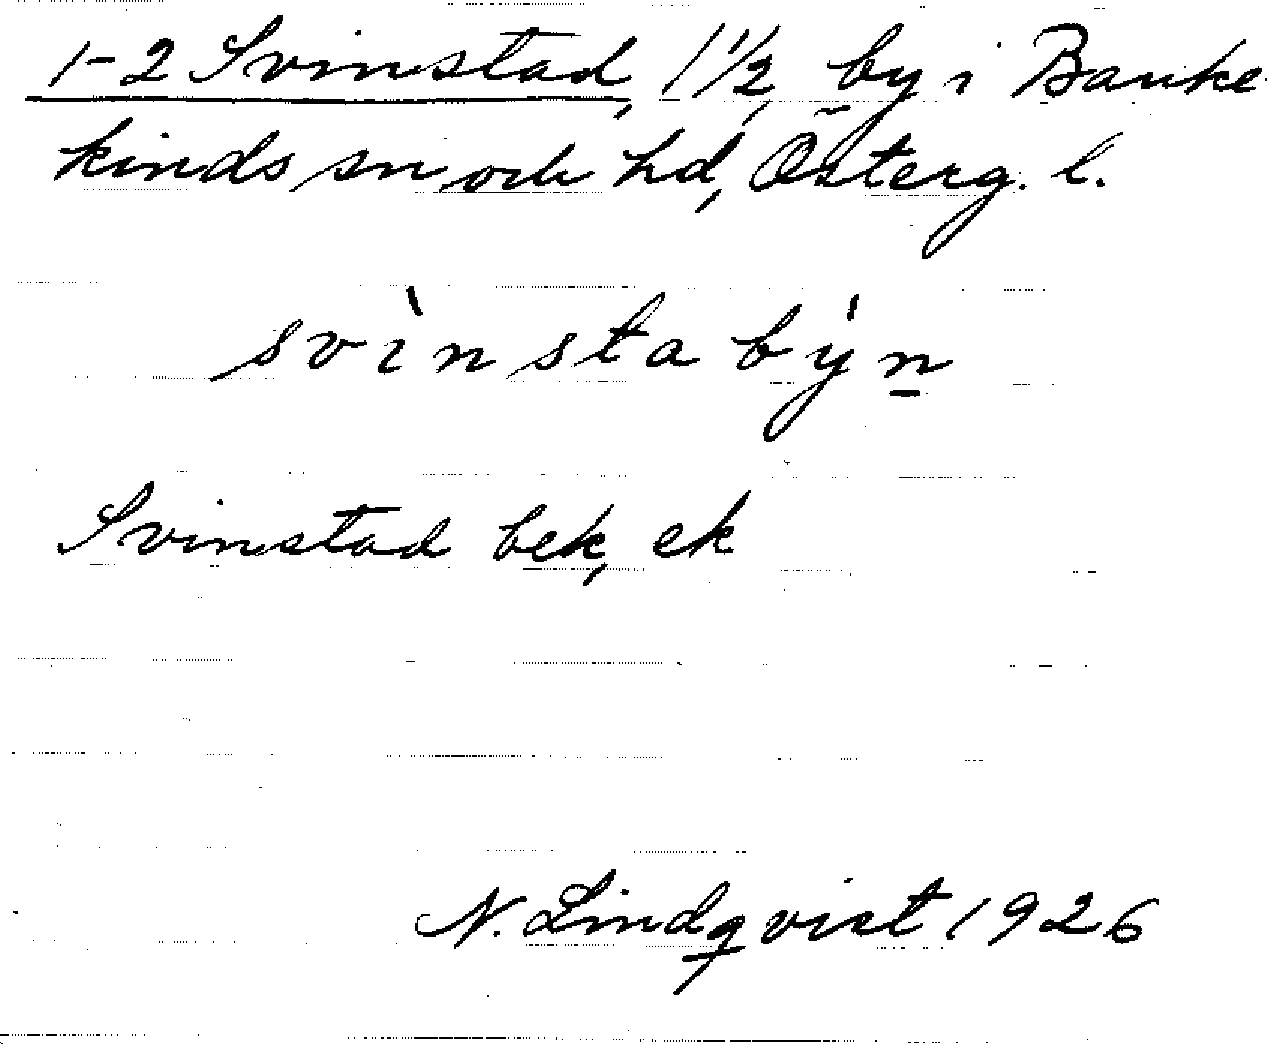 1-2 Svinstad, 1 1/2, by i Banke
kinds sn och hd, Österg. l.
svìnstabýn
Svinstad bek, ek
N. Lindqvist 1926